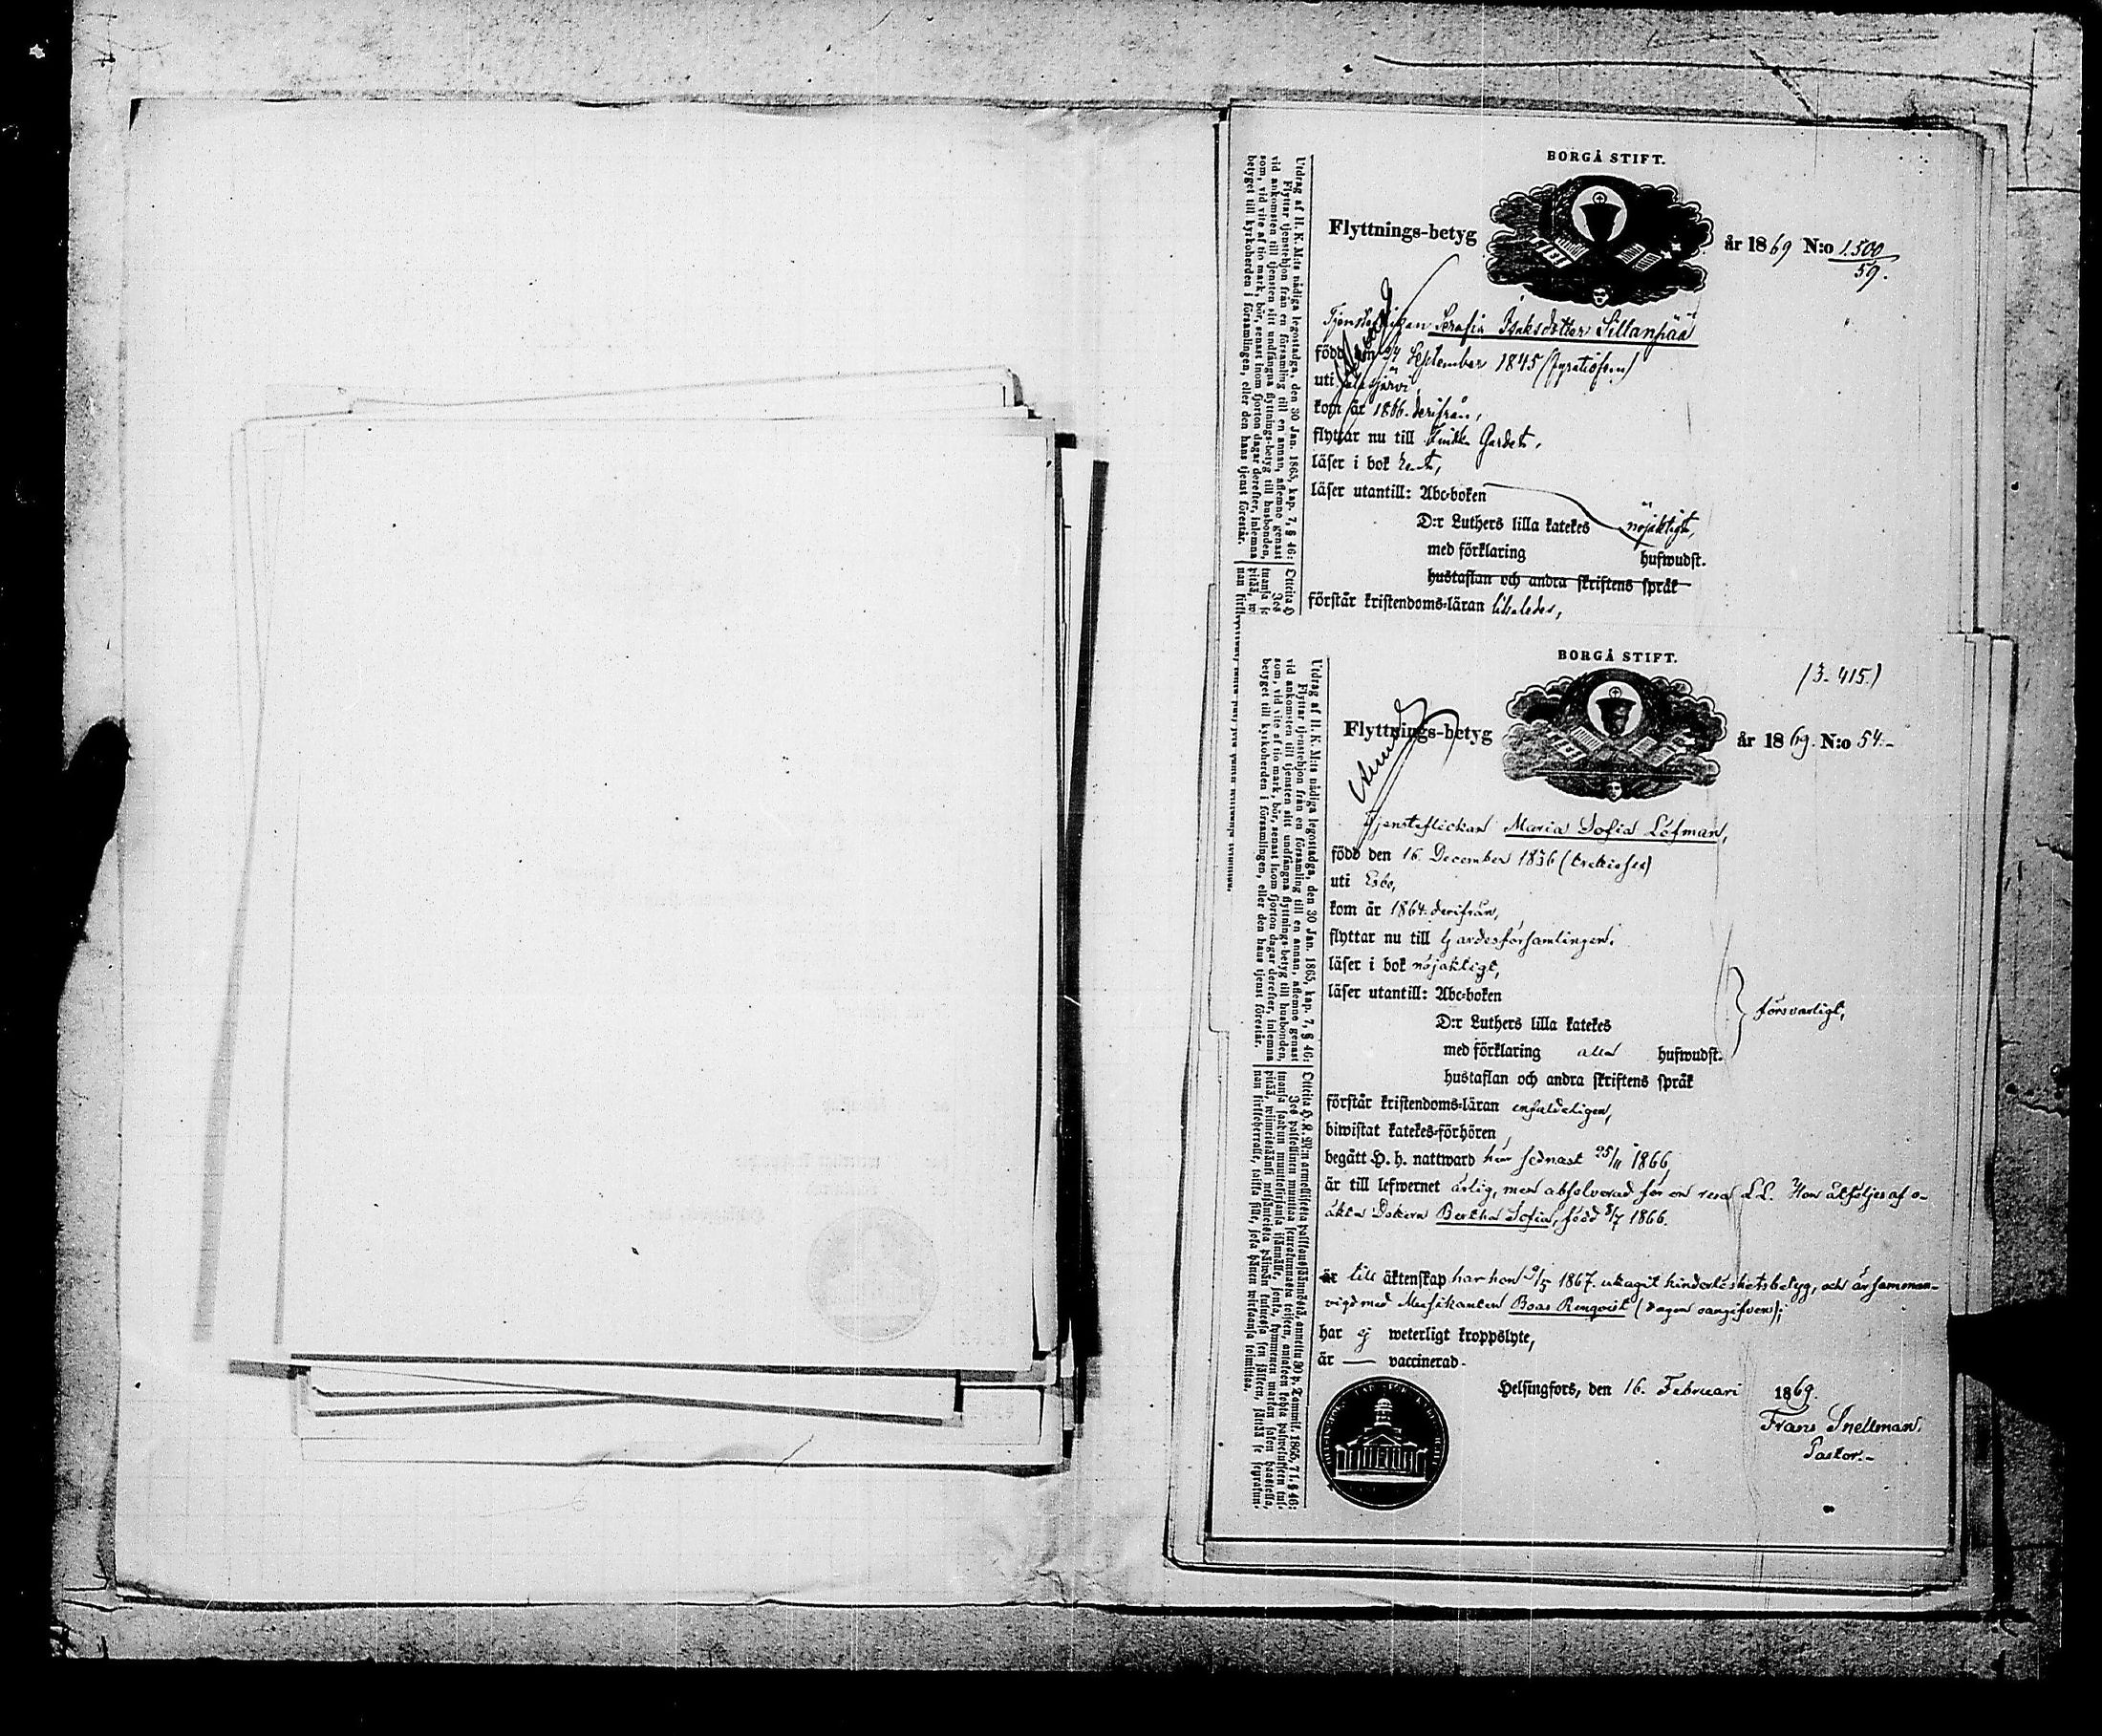 BORGÅ STIFT.
Flyttnings-betyg år 1869 N:o 1.500
59.
Tjensteflickan Serafia Isaksdotter Sillanpää
född den 24 September 1845 (fyratiofem)
uti Alajärvi,
kom år 1866. derifrån,
flyttar nu till Finska Gardets,
läser i bok
läser utantill: Abc-boken
D:r Luthers lilla katekes nöjaktigt,
med förklaring hufwudst.
hustaflan och andra skriftens språk
förstår kristendoms-läran likaledes,
Utdrag af H. K. M:ts nådiga legostadga, den 30 Jan. 1865, kap. 7, § 46:
Flyttar tjenstehjon från en församling till en annan, aflemne genast
vid ankomsten till tjensten sitt undfångna flyttnings-betyg till husbonden,
som, vid vite af tio mark, bör, senast inom fjorton dagar derefter, inlemna
betyget till kyrkoherden i församlingen, eller den hans tjenst förestår.
BORGÅ STIFT.
(3-415.)
Flyttnings-betyg år 1869. N:o 54.-
Tjensteflickan Maria Sofia Löfman,
född den 16. December 1836 (trettiosex)
uti Esbo,
kom år 1864. derifrån,
flyttar nu till Gardesförsamlingen.
läser i bok nöjaktigt,
läser utantill: Abc-boken
försvarligt,
D:r Luthers lilla katekes
med förklaring alla hufwudst.
hustaflan och andra skriftens språk
förstår kristendoms-läran enfaldeligen,
biwistat katekes-förhören
begått H. h. nattward här sednast 25/11 1866,
är till lefwernet ärlig, men absolverad för en resa L.L. Hon åtföljes af o-
äkta dottern Bertha Sofia, född 8/7 1866.
är till äktenskap har hon 9/5 1867. uttagit hinderlöshetsbetyg, och är samman-
vigd med Musikanten Boas Renqvist (dagen oangifven);
har ej weterligt kroppslyte,
är — vaccinerad.
Helsingfors, den 16. Februari 1869.
Frans Snellman.
Pastor.-
Utdrag af H. K. M:ts nådiga legostadga, den 30 Jan. 1865, kap. 7, § 46:
Flyttar tjenstehjon från en församling till en annan, aflemne genast
vid ankomsten till tjensten sitt undfångna flyttnings-betyg till husbonden,
som, vid vite af tio mark, bör, senast inom fjorton dagar derefter, inlemna
betyget till kyrkoherden i församlingen, eller den hans tjenst förestår.